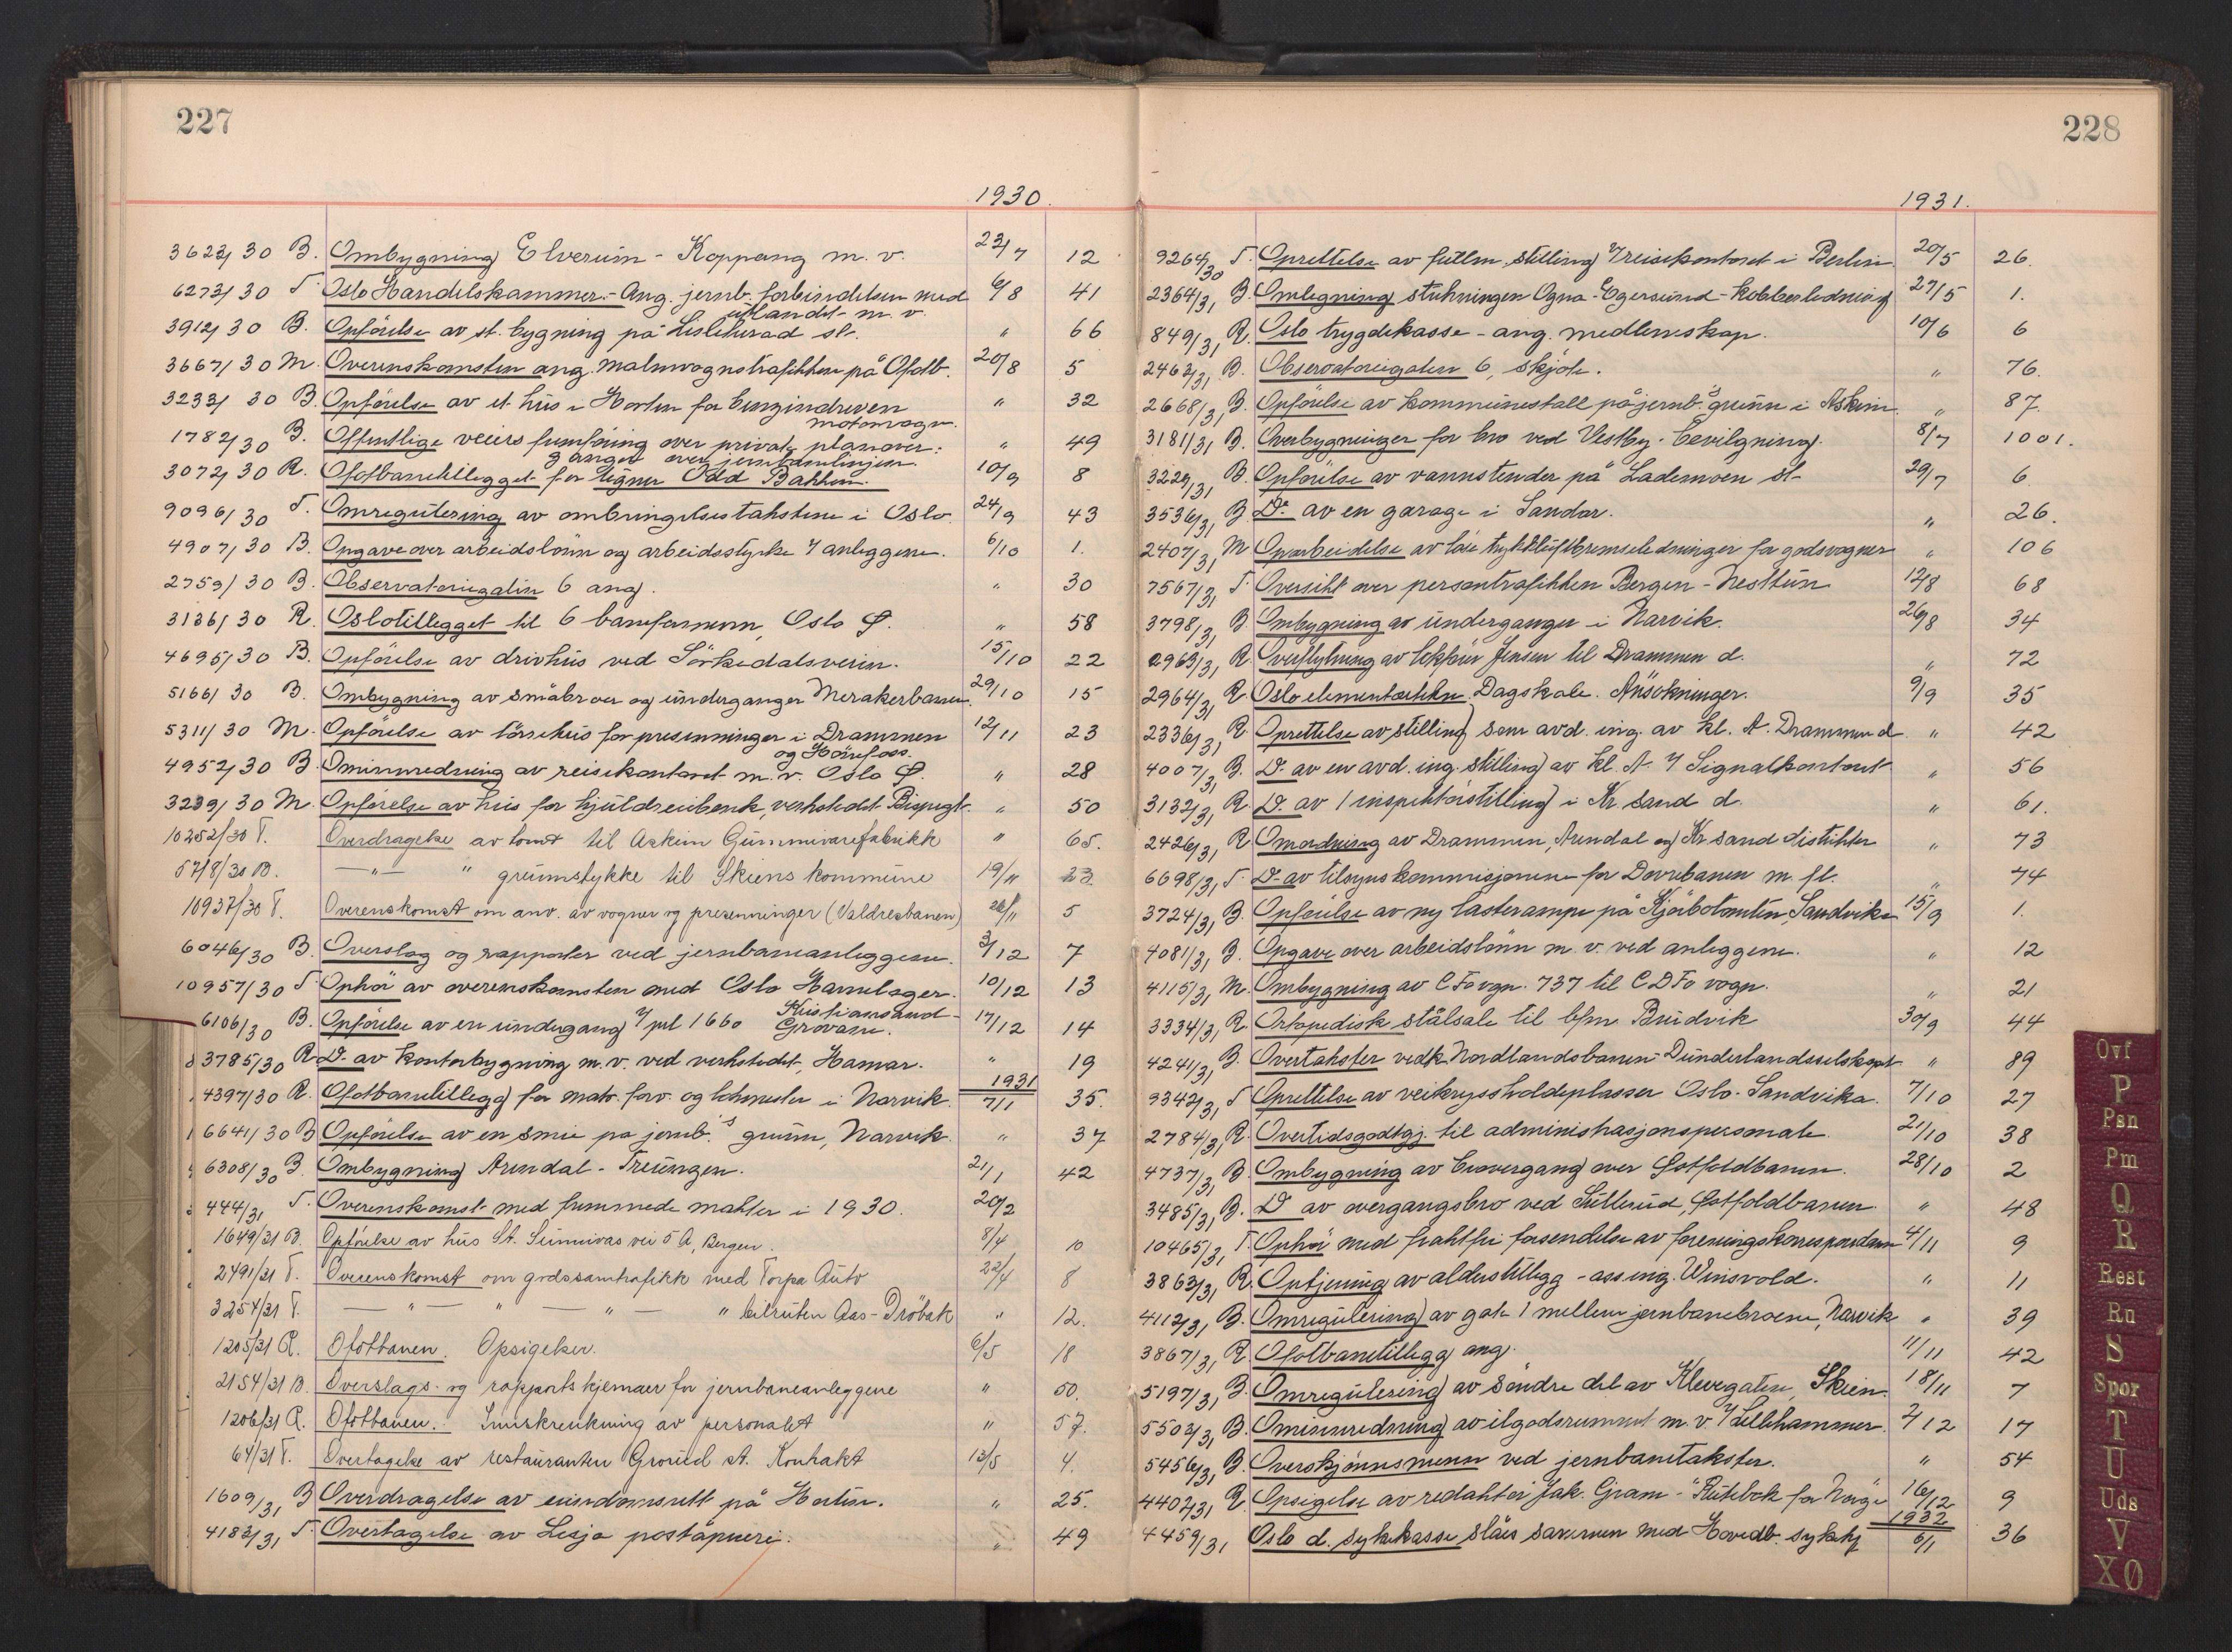 227
1930.
3622/30 B. Ombygning Elverum - Koppang m. v. 23/7 12
6273/30 T. Oslo Handelskammer. - Ang. jernb. forbindelsen med 6/8 41
utlandet m. v.
3912/30 B. Opförelse av st. bygning på Lisleherad st. " 66
3667/30 M. Overenskomsten ang. malmvognstrafikken på Ofotb. 20/8 5
3233/30 B. Opförelse av et hus i Horten for benzindreven " 32
motorvogn.
1782/30 B. Offentlige veiers fremföring over private planover- " 49
ganger over jernbanelinjen.
3072/30 R. Ofotbanetillegget for tegner Odd Bakken. 10/9 8
9096/30 T. Omregulering av ombringelsestakstene i Oslo 24/9 43
4907/30 B. Opgave over arbeidslönn og arbeidsstyrke v/ anleggene. 6/10 1.
2759/30 B. Observatoriegaten 6 ang. " 30
3136/30 R. Oslotillegget til 6 baneformenn, Oslo Ø. " 58
4695/30 B. Opförelse av drivhus ved Sörkedalsveien. 15/10 22
5166/30 B. Ombygning av småbroer og underganger Merakerbanen. 29/10 15
5311/30 M. Opförelse av törrehus for presenninger i Drammen 12/11 23
og Hönefoss.
4952/30 B. Ominnredning av reisekontoret m. v. Oslo Ø. " 28
3239/30 M. Opförelse av hus for hjuldreiebenk, verkstedet Bispegt. " 50
10252/30 T. Overdragelse av tomt til Askim Gummivarefabrikk " 65.
5718/30 B. — " — " grunnstykke til Skiens kommune 19/11 23
10937/30 T. Overenskomst om anv. av vogner og presenninger (Valdresbanen) 26/11 5
6046/30 B. Overslag og rapporter ved jernbaneanleggene. 3/12 7
10957/30 T. Ophör av overenskomsten med Oslo Havnelager. 10/12 13
6106/30 B. Opförelse av en undergang v/ pel 1660 Kristiansand - Grovane. 17/12 14
3785/30 R. Do. av kontorbygning m. v. ved verkstedet, Hamar. " 19
1931
4397/30 R. Ofotbanetillegg for matr. forv. og lokmester i Narvik. 7/1 35.
6641/30 B. Opförelse av en smie på jernb.'s grunn, Narvik. " 37
6308/30 B. Ombygning Arendal - Treungen. 21/1 42
444/31 T. Overenskomst med fremmede makter i 1930. 20/2
1649/31 B. Opförelse av hus St. Sunnivas vei 5 A, Bergen. 8/4 10
2491/31 T. Overenskomst om godssamtrafikk med Torpa Auto 22/4 8
3254/31 T. — " — " — " — " bilruten Aas - Dröbak " 12.
1205/31 R. Ofotbanen. Opsigelser. 6/5 18
2154/31 B. Overslags- og rapportskjemaer for jernbaneanleggene " 50.
1206/31 R. Ofotbanen. Innskrenkning av personalet " 57.
64/31 T. Overtagelse av restauranten Grorud st. Kontrakt 13/5 4.
1609/31 B. Overdragelse av eiendomsrett på Horten. " 25.
4183/31 T. Overtagelse av Lesja poståpneri. " 49
228
1931.
9264/30 T. Oprettelse av fullm. stilling v/ reisekontoret i Berlin 20/5 26.
2364/31 B. Omlegning strekningen Ogna - Egersund - kobberledning 27/5 1.
849/31 R. Oslo trygdekasse - ang. medlemskap. 10/6 6
2463/31 B. Observatoriegaten 6, skjöte. " 76.
2668/31 B. Opförelse av kommunestall på jernb.'s grunn i Askim " 87.
3181/31 B. Overbygninger for bro ved Vestby. Bevilgning. 8/7 1001.
3229/31 B. Opförelse av vannstender på Lademoen st. 29/7 6
3536/31 B. Do. av en garage i Sandar. " 26.
2407/31 M Oparbeidelse av löse trykkluftbremseledninger for godsvogner " 106
7567/31 T Oversikt over persontrafikken Bergen - Nesttun 12/8 68
3798/31 B Ombygning av underganger i Narvik. 26/8 34
2963/31 R. Overflytning av kontör Jensen til Drammen d. " 72
2964/31 R Oslo elementærtekn. Dagskole. Ansökninger. 9/9 35
2336/31 R Oprettelse av stilling som avd. ing. av kl. A. Drammen d " 42
4007/31 B. Do. av en avd. ing. stilling av kl. A. v/ Signalkontoret " 56
3132/31 R. Do. av 1 inspektörstilling i Kr. sand d. " 61.
2426/31 R Omordning av Drammen, Arendal og Kr. sand distrikter " 73
6698/31 T. Do. av tilsynskommisjonene for Dovrebanen m. fl. " 74
3724/31 B. Opförelse av ny lasterampe på Kjörbotomten, Sandvika 15/9 1.
4081/31 B. Opgave over arbeidslönn m. v. ved anleggene. " 12
4115/31 M. Ombygning av CFo vgn. 737 til CDFo vogn. " 21
3334/31 R. Ortopedisk stålsåle til bfm. Brudvik 30/9 44
4241/31 B. Overtakster vedk. Nordlandsbanen - Dunderlandsselskapet " 89
9342/31 T Oprettelse av veikryssholdeplasser Oslo - Sandvika. 7/10 27
2784/31 R. Overtidsgodtgj. til administrasjonspersonale. 21/10 38
4737/31 B. Ombygning av broovergang over Østfoldbanen. 28/10 2
3485/31 B. Do. av overgangsbro ved Sütterud, Østfoldbanen. " 48
10465/31 T. Ophör med fraktfri forsendelse av foreningskorrespondanse 4/11 9
3863/31 R. Optjening av alderstillegg - ass. ing. Winsvold. " 11
4112/31 B. Omregulering av gate 1 mellem jernbanebroene, Narvik " 39
3867/31 R. Ofotbanetillegg ang. 11/11 42
5197/31 B. Omregulering av söndre del av Klevegaten, Skien. 18/11 7
5503/31 B. Ominnredning av ilgodsrummet m. v. v/ Lillehammer. 2/12 17
5456/31 B. Overskjönnsmenn ved jernbanetakster. " 54
4402/31 R. Opsigelse av redaktör Jak. Gram - "Rutebok for Norge" 16/12 9
1932
4459/31 Oslo d. sykekasse slåes sammen med Hovedb. sykekj 6/1 36
Ovf
P
Psn
Pm
Q
R
Rest
Ru
S
Spor
T
U
Uds
V
XØ